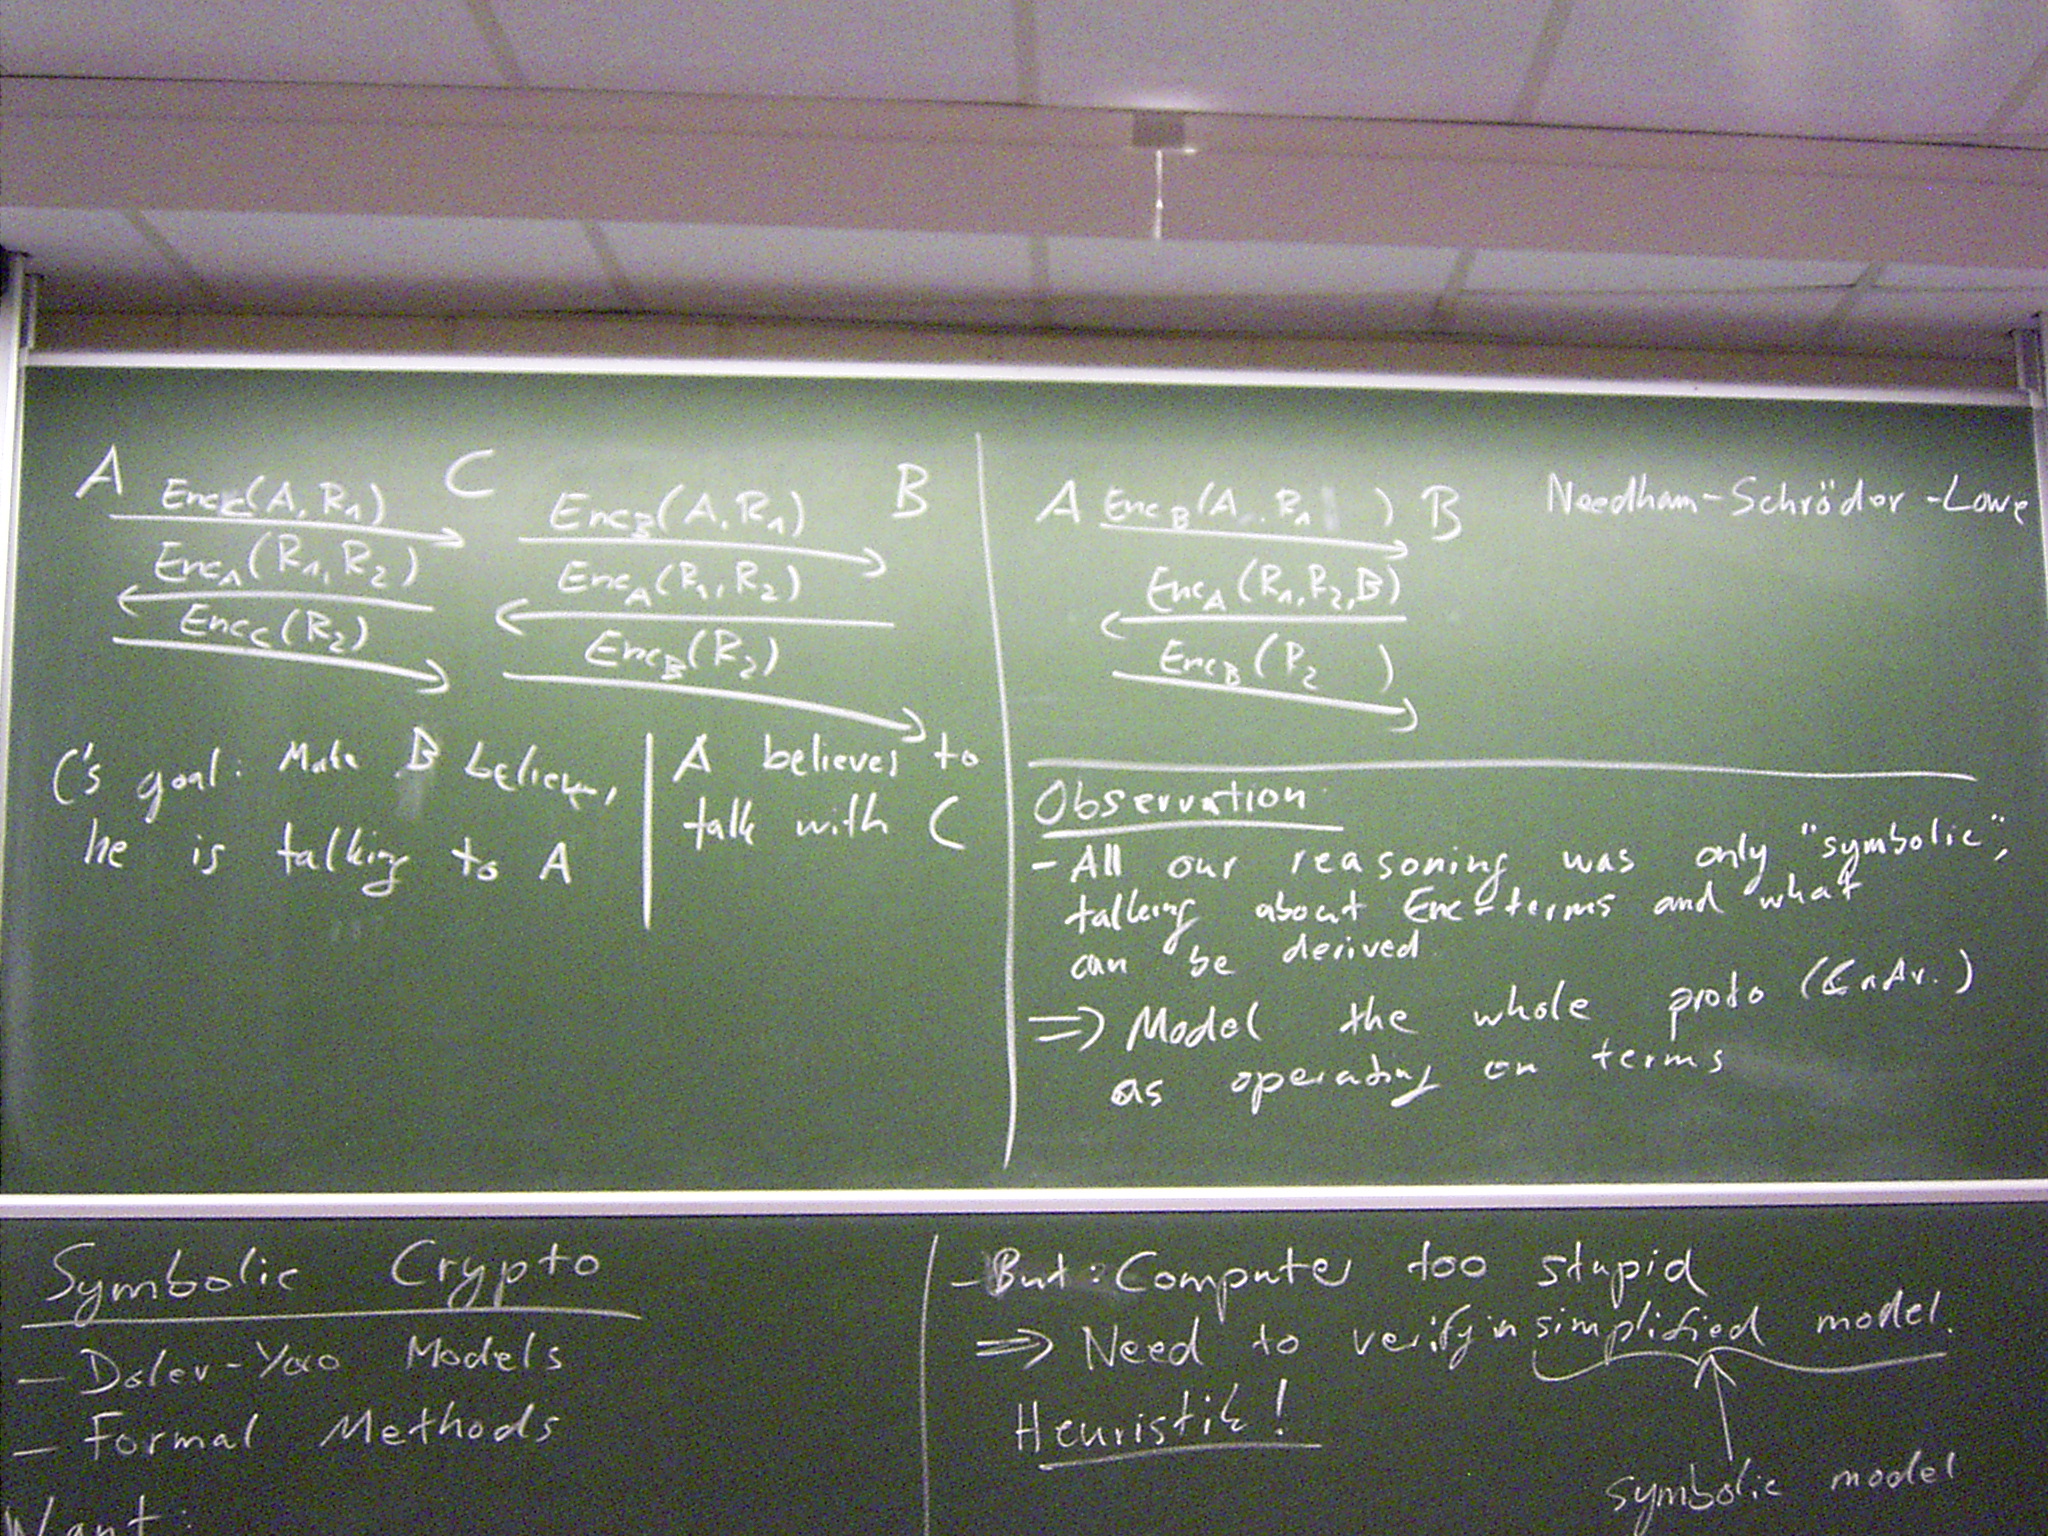 A Enc_C(A, R_1) C Enc_B(A, R_1) B
Enc_A(R_1, R_2) Enc_A(R_1, R_2)
Enc_C(R_2) Enc_B(R_2)
C's goal: Make B believe,
he is talking to A
A believes to
talk with C
A Enc_B(A, R_1 ) B Needham-Schröder-Lowe
Enc_A(R_1, R_2, B)
Enc_B(R_2 )
Observation
- All our reasoning was only "symbolic",
talking about Enc-terms and what
can be derived
=> Model the whole proto (& Adv.)
as operating on terms
Symbolic Crypto
- Dolev-Yao Models
- Formal Methods
Want:
- But: Computer too stupid
=> Need to verify in simplified model.
Heuristik!
symbolic model